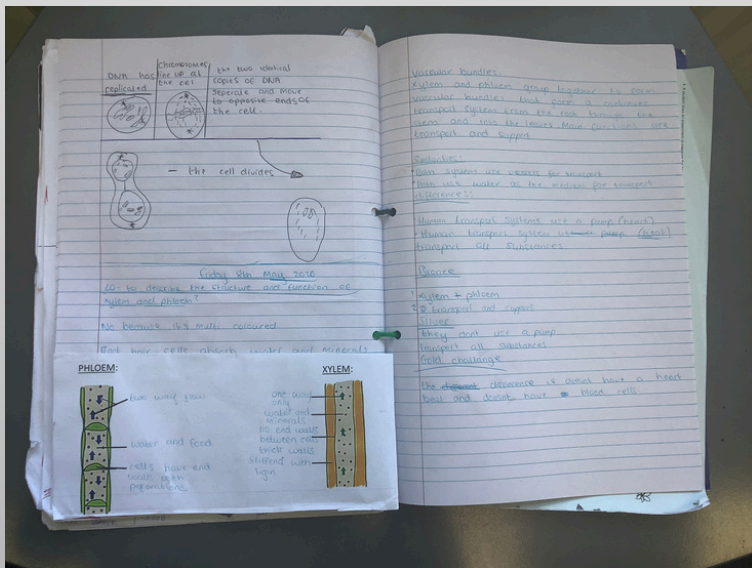 DNA has
replicated
chromosomes
line up at
the cel
the two identical
copies of DNA
seperate and move
to opposite ends of
the cell.
— the cell divides
Friday 8th May 2020
LO- to describe the structure and function of
xylem and phloem?
No because its multi coloured
Root hair cells absorb water and minerals
PHLOEM:
two way flow
water and food
cells have end
walls with
perforations
XYLEM:
one way
only
water and
minerals
no end walls
between cells
thick walls
stiffend with
lignin
Vascular bundles:
xylem and phloem group together to form
vascular bundles. both form a continues
transport system from the root through the
stem and into the leaves. Main functions are
transport and support
Similarities:
- Both systems use vessels for transport
- Both use water as the medium for transport
differences:
- Human transport systems use a pump (heart)
- Human transport system (heart)
transport all substances
Bronze
1 xylem + phloem
2 transport and support
Sliver
they dont use a pump
transport all substances
Gold challange
the difference is doesnt have a heart
beat and doesnt have blood cells.